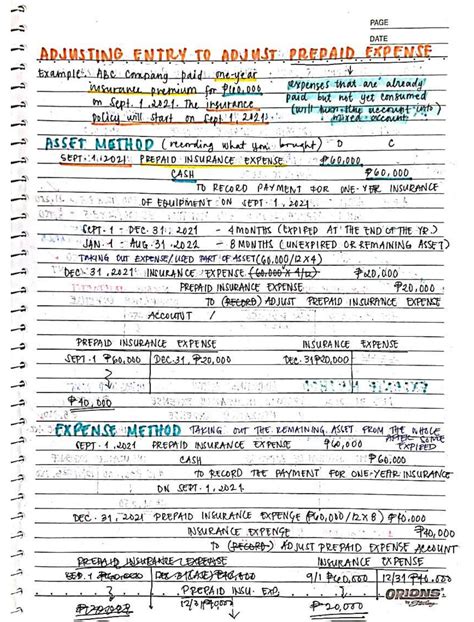 PAGE
DATE
ADJUSTING ENTRY TO ADJUST PREPAID EXPENSE
Example: ABC Company paid one-year
insurance premium for ₱60,000
on Sept. 1, 2021. The insurance
policy will start on Sept 1, 2021.
expenses that are already
paid but not yet consumed
(will turn the account into)
mixed account
ASSET METHOD (recording what you bought) D C
SEPT. 1, 2021 PREPAID INSURANCE EXPENSE ₱60,000
CASH ₱60,000
TO RECORD PAYMENT FOR ONE-YEAR INSURANCE
OF EQUIPMENT ON SEPT. 1, 2021
SEPT. 1 - DEC. 31, 2021 - 4 MONTHS (EXPIRED AT THE END OF THE YR.)
JAN. 1 - AUG. 31, 2022 - 8 MONTHS (UNEXPIRED OR REMAINING ASSET)
TAKING OUT EXPENSE/USED PART OF ASSET (60,000/12 X 4)
DEC. 31, 2021 INSURANCE EXPENSE (60,000 X 4/12) ₱20,000
PREPAID INSURANCE EXPENSE ₱20,000
TO (RECORD) ADJUST PREPAID INSURANCE EXPENSE
ACCOUNT /
PREPAID INSURANCE EXPENSE INSURANCE EXPENSE
SEPT. 1 ₱60,000 DEC. 31, ₱20,000 DEC. 31 ₱20,000
₱40,000
EXPENSE METHOD TAKING OUT THE REMAINING ASSET FROM THE WHOLE
AFTER SOME
EXPIRED
SEPT. 1, 2021 PREPAID INSURANCE EXPENSE ₱60,000
CASH ₱60,000
TO RECORD THE PAYMENT FOR ONE-YEAR INSURANCE
ON SEPT. 1, 2021
DEC. 31, 2021 PREPAID INSURANCE EXPENSE (₱60,000/12 X 8) ₱40,000
INSURANCE EXPENSE ₱40,000
TO (RECORD) ADJUST PREPAID EXPENSE ACCOUNT
PREPAID INSURANCE EXPENSE INSURANCE EXPENSE
SEP. 1 ₱60,000 9/1 ₱60,000 12/31 ₱40,000
PREPAID INSU. EXP.
12/31 ₱40,000 ₱20,000
ORIONS